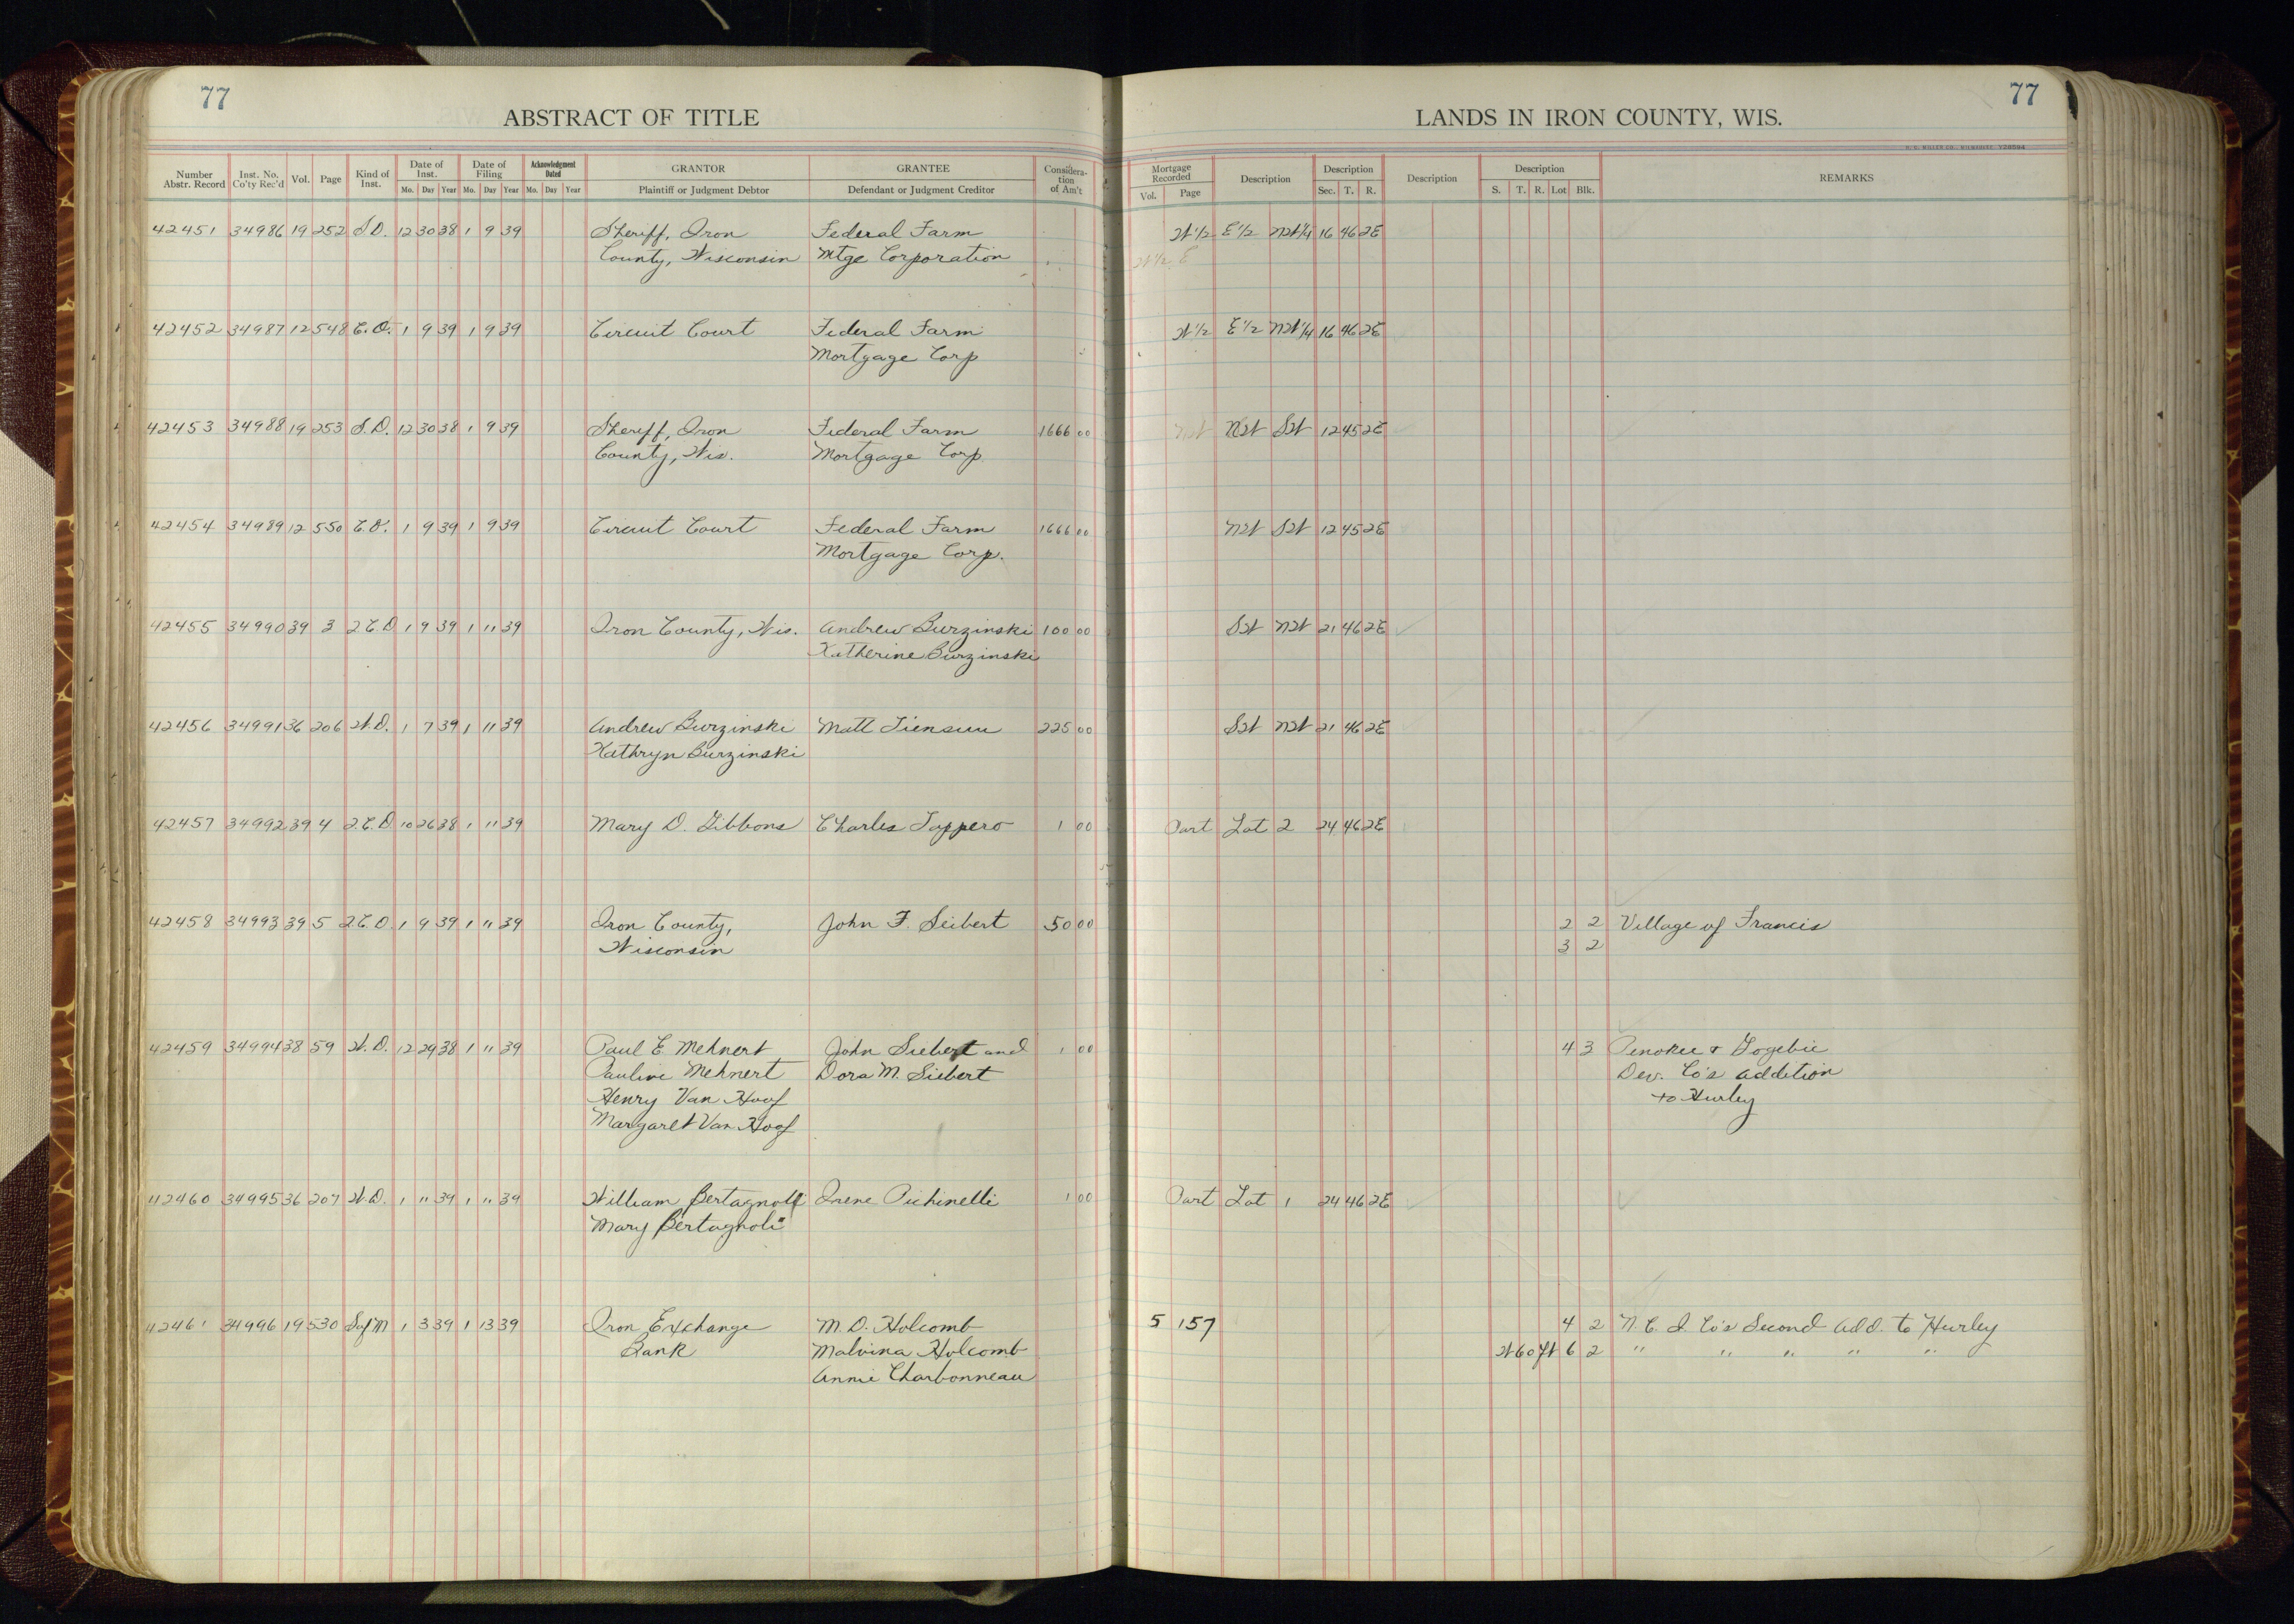 77
77
ABSTRACT OF TITLE
LANDS IN IRON COUNTY, WIS.
Number Abstr. Record Inst. No. Co'ty Rec'd Vol. Page Kind of Inst. Date of Inst. Mo. Day Year Date of Filing Mo. Day Year Acknowledgment Dated Mo. Day Year GRANTOR Plaintiff or Judgment Debtor GRANTEE Defendant or Judgment Creditor Consideration of Am't Mortgage Recorded Vol. Page Description Description Sec. T. R. Description Description S. T. R. Lot Blk. REMARKS
42451 34986 19 252 S.D. 12 30 38 1 9 39 Sheriff, Iron Federal Farm W1/2 E1/2 NW1/4 16 46 2E
County, Wisconsin Mtge Corporation W1/2 E
42452 34987 12 548 C.O. 1 9 39 1 9 39 Circuit Court Federal Farm W1/2 E1/2 NW1/4 16 46 2E
Mortgage Corp
42453 34988 19 253 S.D. 12 30 38 1 9 39 Sheriff, Iron Federal Farm 1666 00 NW NW SW 12 45 2E
County, Wis. Mortgage Corp
42454 34989 12 550 C.O. 1 9 39 1 9 39 Circuit Court Federal Farm 1666 00 NW SW 12 45 2E
Mortgage Corp.
42455 34990 39 3 2.C.D 1 9 39 1 11 39 Iron County, Wis. Andrew Burzinski 100 00 SW NW 21 46 2E
Katherine Burzinski
42456 34991 36 206 W.D. 1 7 39 1 11 39 Andrew Burzinski Matt Tiensuu 225 00 SW NW 21 46 2E
Kathryn Burzinski
42457 34992 39 4 2.C.D. 10 26 38 1 11 39 Mary D. Gibbons Charles Tappero 1 00 Part Lot 2 24 46 2E
42458 34993 39 5 2.C.D. 1 9 39 1 11 39 Iron County, John F. Seibert 50 00 2 2 Village of Francis
Wisconsin 3 2
42459 34994 38 59 W.D. 12 29 38 1 11 39 Paul E. Mehnert John Siebert and 1 00 4 3 Penokee & Gogebic
Pauline Mehnert Dora M. Siebert Dev. Co's Addition
Henry Van Hoof to Hurley
Margaret Van Hoof
112460 34995 36 207 W.D. 1 11 39 1 11 39 William Bertagnoli Irene Pichinelli 1 00 Part Lot 1 24 46 2E
Mary Bertagnoli
42461 34996 19 530 Sof M 1 3 39 1 13 39 Iron Exchange M. D. Holcomb 5 157 4 2 N. C. I. Co's Second Add. to Hurley
Bank Malvina Holcomb W 60 ft 6 2 " " " " "
Annie Charbonneau